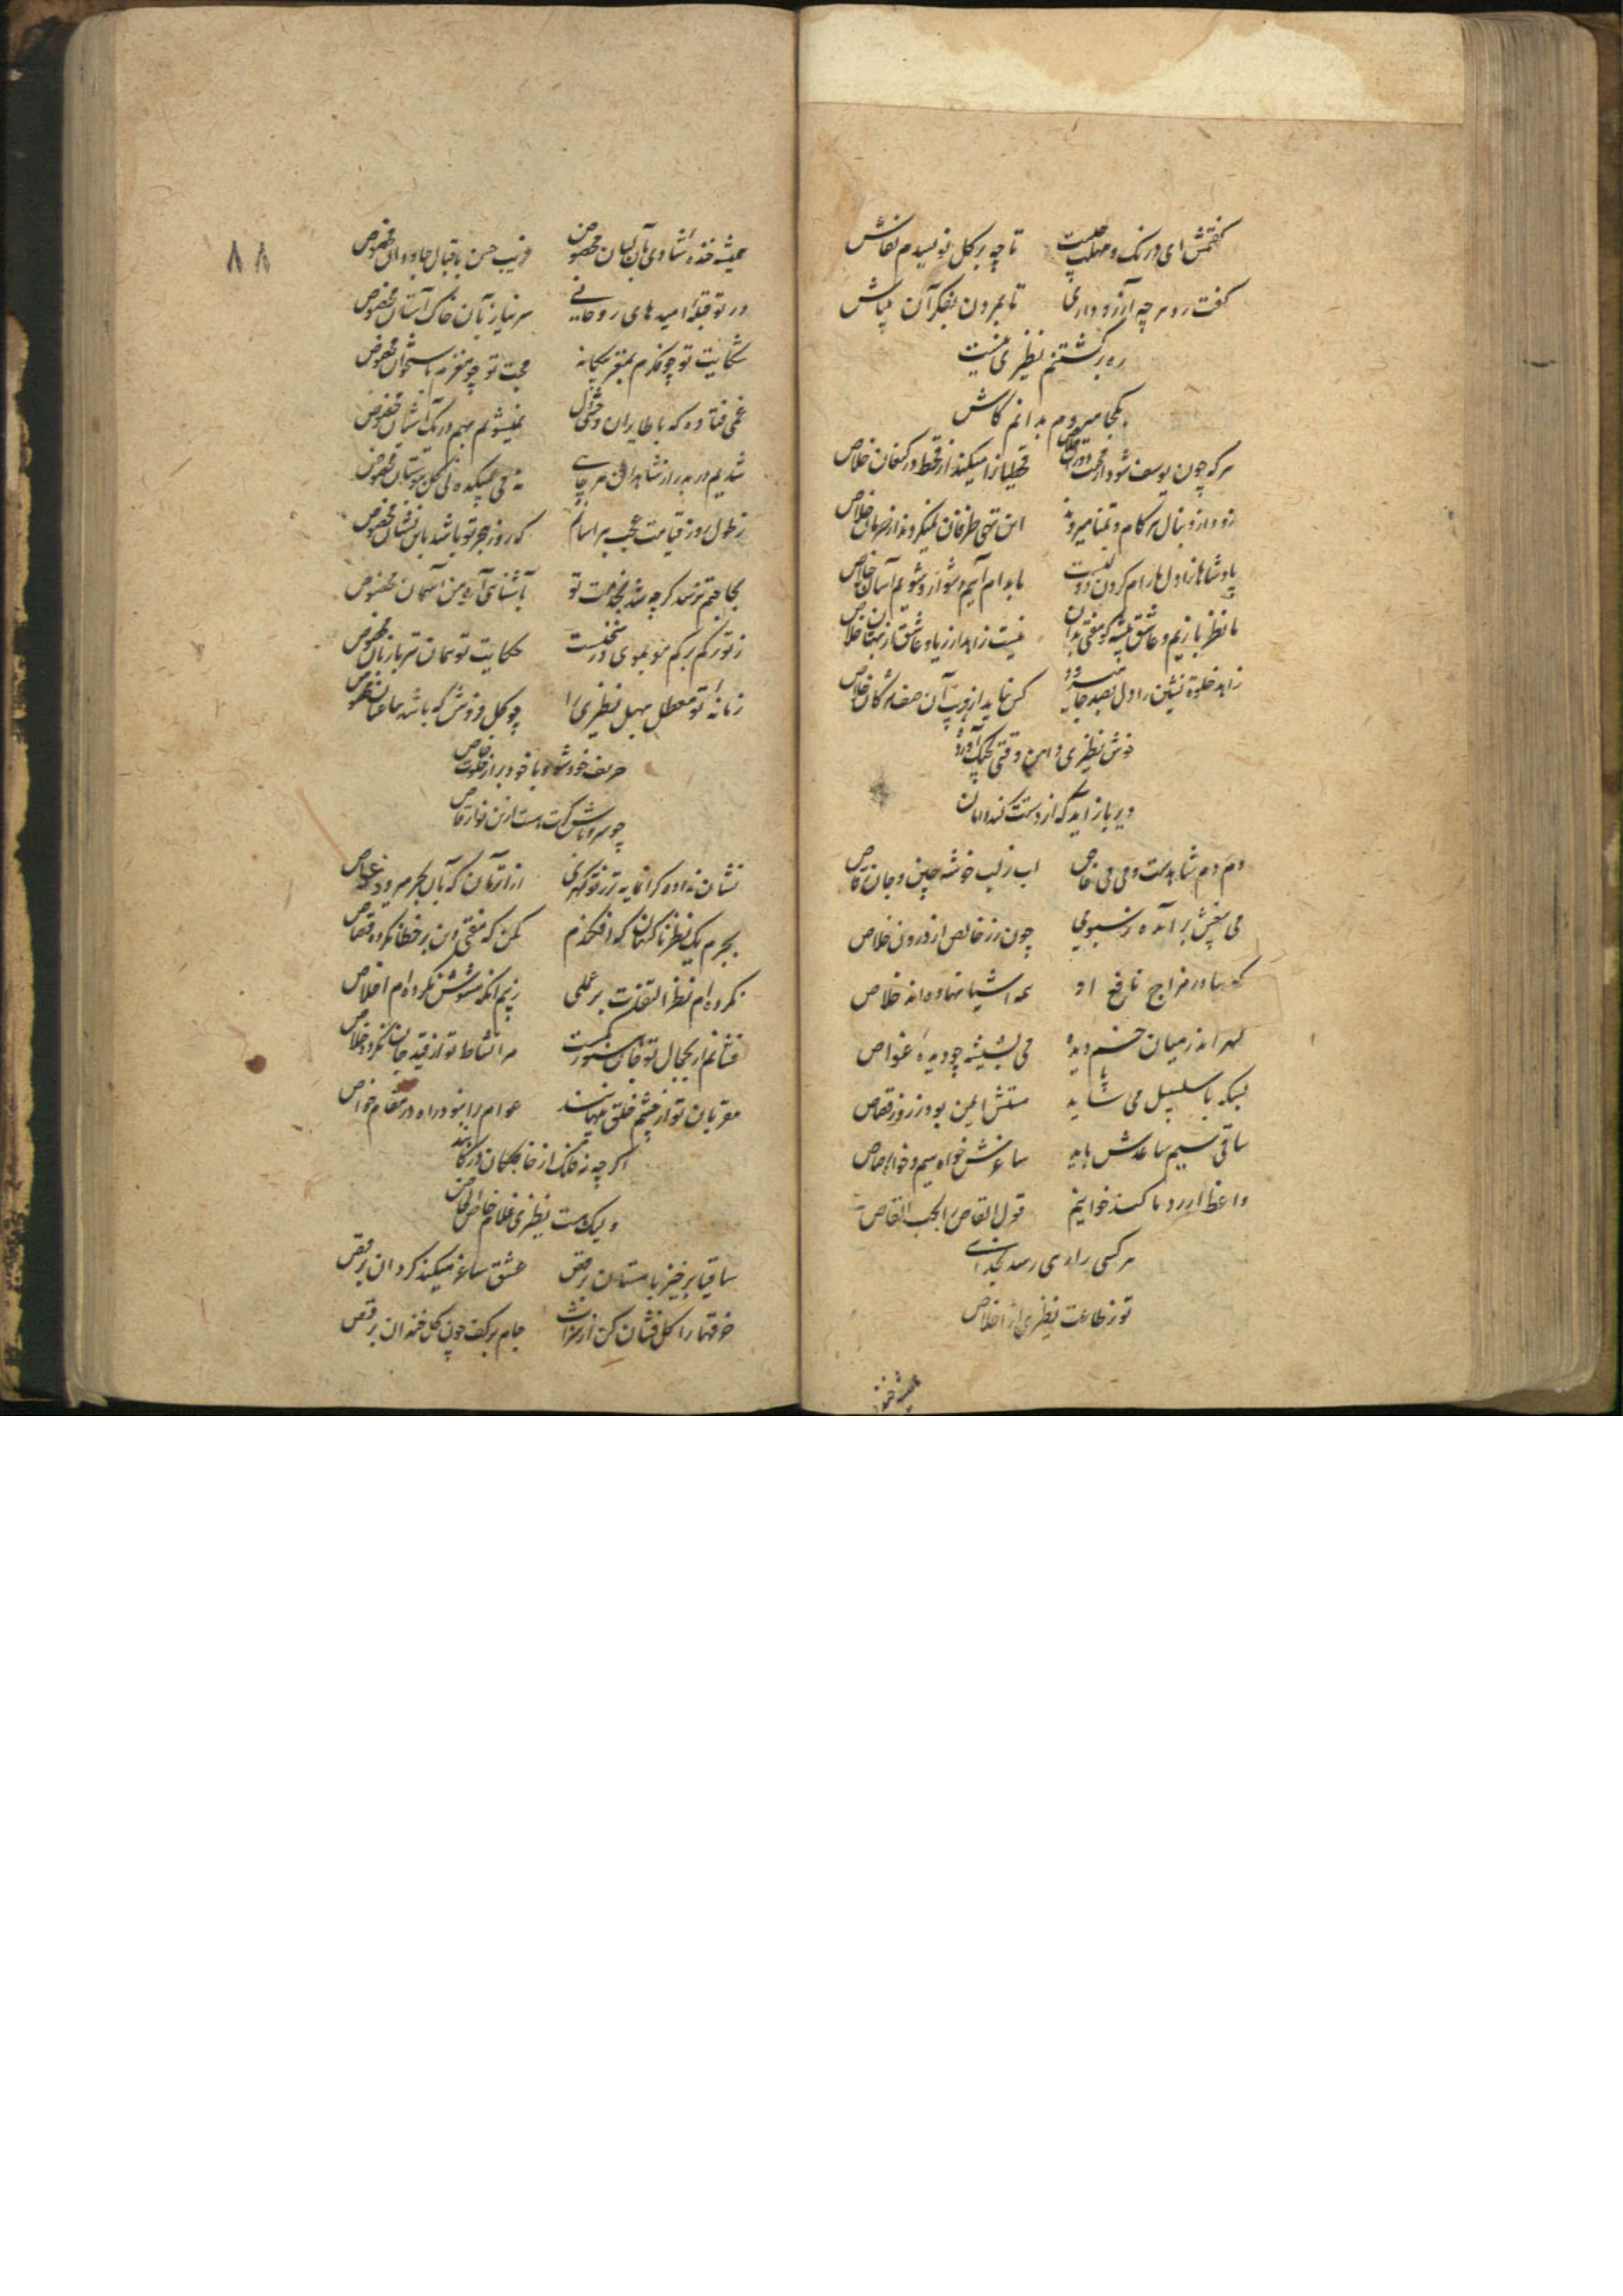 گفتمش ای درنک و مهلت چیست تا چه بر کل نویسدم نقاش
گفت رو هر چه آرزو داری تا بمردن بفکر آن میباش
ره برگشتنم نظیری نیست
بکجا میروم بدانم کاش
هر که چون یوسف شود از قحطیانرا میکند از قحط در کنعان خلاص
زود از دنبال هر کام و تمنا میروند این تهی ظرفان نمیگردند از حرمان خلاص
پادشاهانرا دل ما رام کردن دور نیست ما بدام آییم دشوار و شویم آسان خلاص
ما نظر بازیم و عاشق پیشه کو مفتی بدان نیست زاهد از ریا و عاشق از بهتان خلاص
زاهد خلوة نشین را دل بصد جا میرود کس نیاید از فریب آن صف مژکان خلاص
خوش نظیری دامن وقتی بچنک آورده
دیر باز آید که از دستت کند دامان
دم دم شاهدست و می می خاص لب ز لب خوشه چین و جان رقاص
می بیغش برآمده ز سبوی چون زر خالص از درون خلاص
که بها در مزاج نافع او همه اشیا نهاده اند خلاص
کهر اندر میان خم دیده می بشیشه چو دیده غواص
بسکه با سلسبیل می شاید مستش ایمن بود ز روز قصاص
ساقی سیم ساعدش باید ساغرش خواه سیم و خواه رصاص
واعظ ار رد ما کند خوانیم قول القاص لایحب القاص
هر کسی راه می رسد بخدای
تو ز طاعت نظیری از اخلاص
همیشه خنده
۸۸
همیشه خنده شادی بآن لبان مخصوص فریب حسن باقبال جاودان مخصوص
در تو قبله امیدهای روحانی سر نیاز بآن خاک آستان مخصوص
شکایت تو چو مغزم بمغز بیکانه محبت تو چو مغزم باستخوان مخصوص
غمی فتاده که با طایران وحشی دل نمیشوم بهم در یک آشیان مخصوص
شدیم در بدر از شاهدان هر جایی نه می بمیکده نی کل ببوستان مخصوص
ز طول روز قیامت عجب هراسانم که روز هجر تو باشد باین نشان مخصوص
بجا هم نرسد کر چه شد بخدمت تو بآشنای آه من آسمان مخصوص
ز تو رکم برکم مو بموی در سخنست حکایت تو همان سر بازبان مخصوص
زمانه تو معطل مهل نظیری را چو کل فروش که باشد بباغبان مخصوص
حریف خود شو و با خود برار خلوت خاص
نشان نداده کرانمایه تر ز تو کهری ازان زمان که بآن بحر میرود غواص
بجرم یک نظر ناکهان که افکندم مکن که مفتی دین بر خطا نکرده قصاص
نکرده ام نظر التفات بر عملی ز بیم آنکه مشوش نکرددم اخلاص
فشانم ار بجمال تو جان هنوز کمست مرا نشاط تو از قید جان نکرده خلاص
مقربان تو از چشم خلق پنهانند عوام را نبود راه در مقام خواص
اکر چه ز فلک از خانه
ولیک هست نظیری غلام خاص الخاص
ساقیا برخیز با مستان برقص عشق ساغر میکند کردان برقص
خرقها را کل فشان کن از شراب جام بر کف چون کل خندان برقص